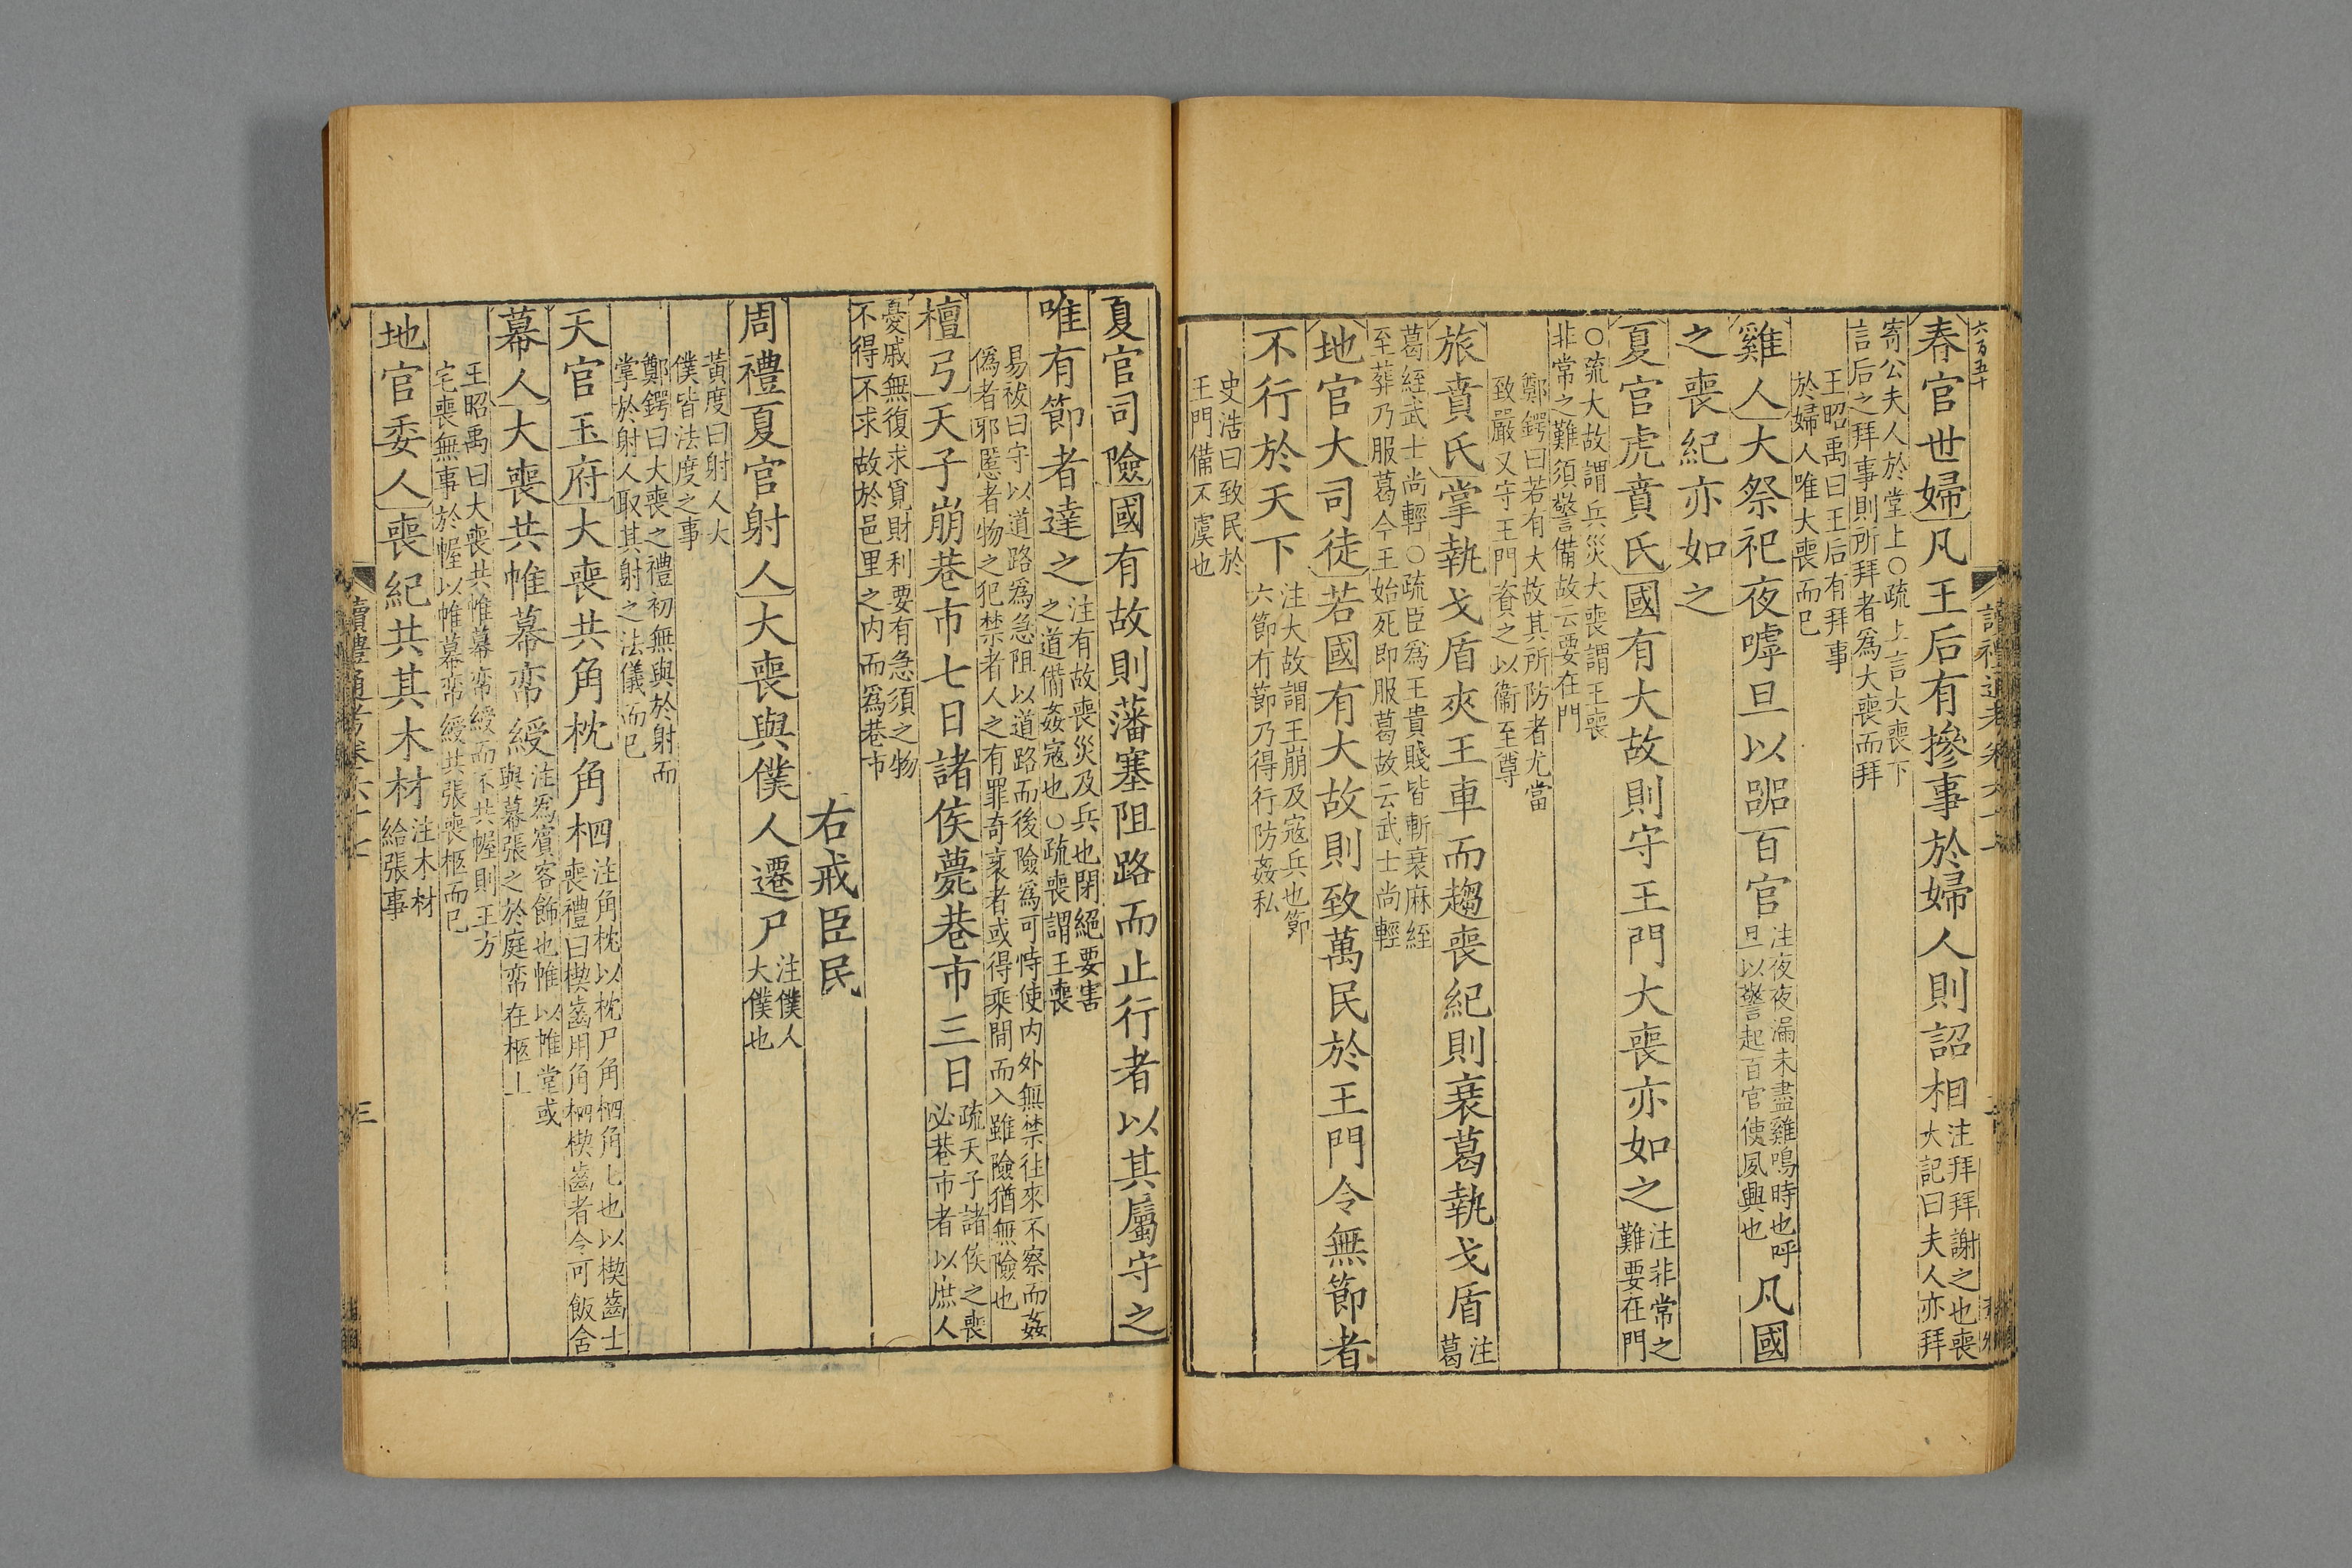 六百五十
春官世婦凡王后有摻事於婦人則詔相
注拜拜謝之也喪
大記曰夫人亦拜
寄公夫人於堂上○疏上言大喪下
言后之拜事則所拜者爲大喪而拜
王昭禹曰王后有拜事
於婦人唯大喪而已
雞人大祭祀夜嘑旦以嘂百官
注夜夜漏未盡雞鳴時也呼
旦以警起百官使夙興也
凡國
之喪紀亦如之
夏官虎賁氏國有大故則守王門大喪亦如之
注非常之
難要在門
○疏大故謂兵災大喪謂王喪
非常之難須警備故云要在門
鄭鍔曰若有大故其所防者尤當
致嚴又守王門賁之以衞至尊
旅賁氏掌執戈盾夾王車而趨喪紀則衰葛執戈盾
注
葛
葛絰武士尚輕○疏臣爲王貴賤皆斬衰麻絰
至葬乃服葛今王始死即服葛故云武士尚輕
地官大司徒若國有大故則致萬民於王門令無節者
不行於天下
注大故謂王崩及寇兵也節
六節有節乃得行防姦私
史浩曰致民於
王門備不虞也
夏官司險國有故則藩塞阻路而止行者以其屬守之
唯有節者達之
注有故喪災及兵也閉絕要害
之道備姦寇也○疏喪謂王喪
易祓曰守以道路爲急阻以道路而後險爲可恃使内外無禁往來不察而姦
僞者邪慝者物之犯禁者人之有罪奇衺者或得乘間而入雖險猶無險也
檀弓天子崩巷市七日諸侯薨巷市三日
疏天子諸侯之喪
必巷市者以庶人
憂戚無復求覓財利要有急須之物
不得不求故於邑里之内而爲巷市
右戒臣民
周禮夏官射人大喪與僕人遷尸
注僕人
大僕也
黃度曰射人大
僕皆法度之事
鄭鍔曰大喪之禮初無與於射而
掌於射人取其射之法儀而已
天官玉府大喪共角枕角柶
注角枕以枕尸角柶角匕也以楔齒士
喪禮曰楔齒用角柶楔齒者令可飯含
幕人大喪共帷幕帟綬
注爲賓客飾也帷以帷堂或
與幕張之於庭帟在柩上
王昭禹曰大喪共帷幕帟綬而不共幄則王方
宅喪無事於幄以帷幕帟綬共張喪柩而已
地官委人喪紀共其木材
注木材
給張事
讀禮通考卷六十七
三